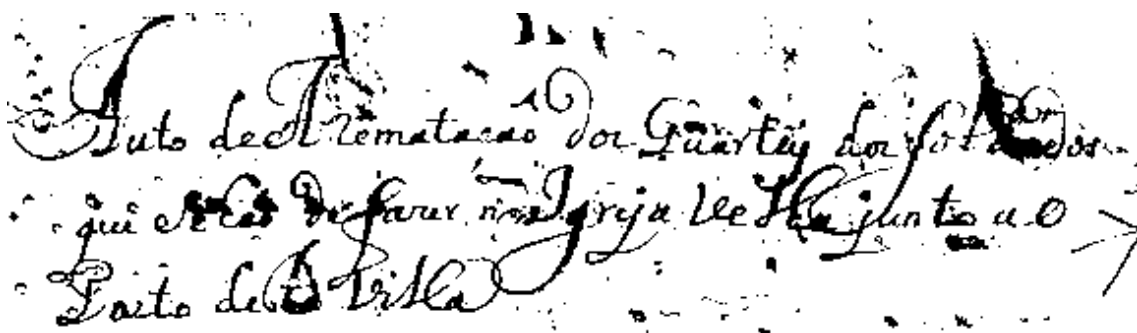 Auto de Arematacao dos Quarteis dos soldados
que se hao de fazer na Igreja Velha junto a o
Porto de Villa